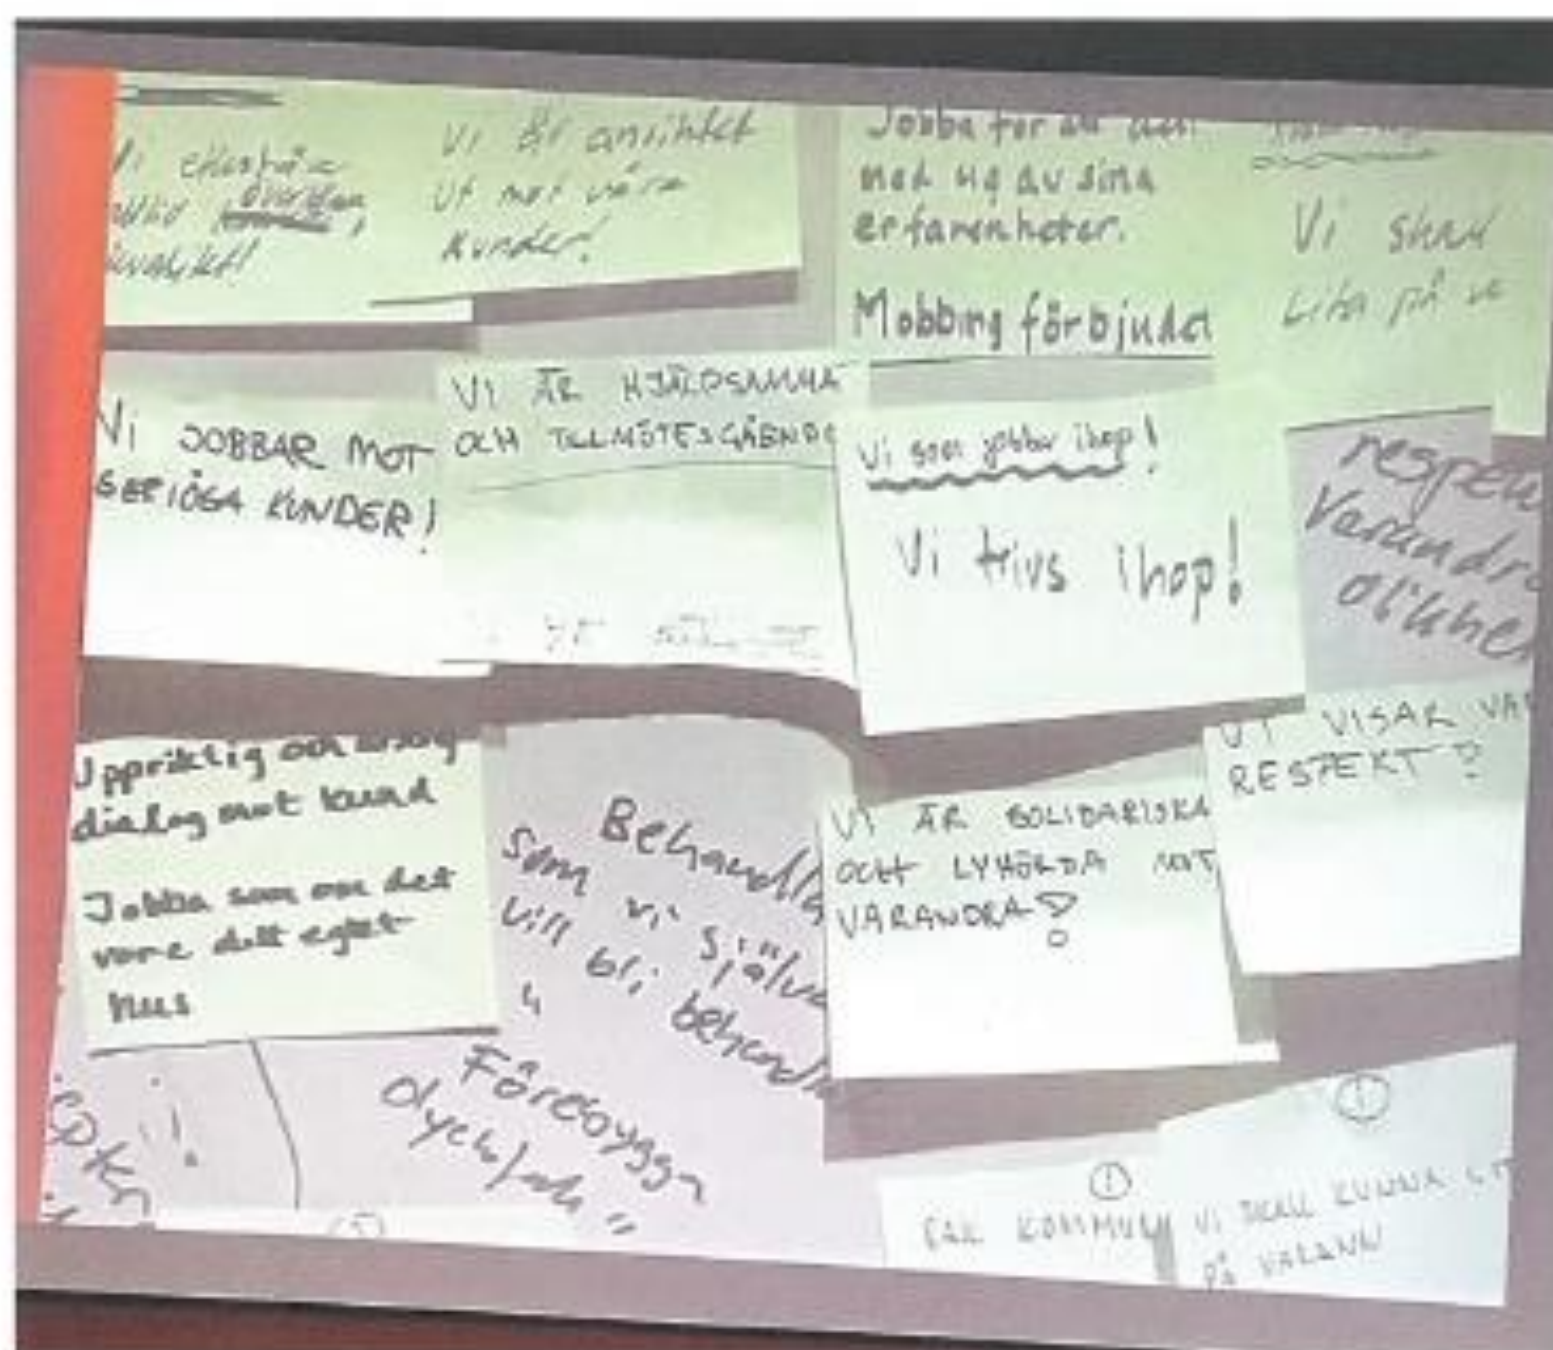 Vi
alltid
Vi är ansiktet
ut mot våra
kunder!
Jobba för att
med sig av sina
erfarenheter.
Mobbing förbjudet
Vi skall
Lita på
Vi JOBBAR MOT
SERIÖSA KUNDER!
VI ÄR HJÄLPSAMMA
OCH TILLMÖTESGÅENDE
Vi som jobbar ihop!
Vi trivs ihop!
respek
Varandra
olikhe
Uppriktig och
dialog mot kund
Jobba som om det
vore ditt eget
hus
Behandla
som vi själva
vill bli
behandl
"Förebygga
"
VI ÄR SOLIDARISKA
OCH LYHÖRDA MOT
VARANDRA!
VI VISAR VA
RESPEKT!
!
RAK KOMMUN
!
VI SKALL KUNNA LIT
PÅ VARANN